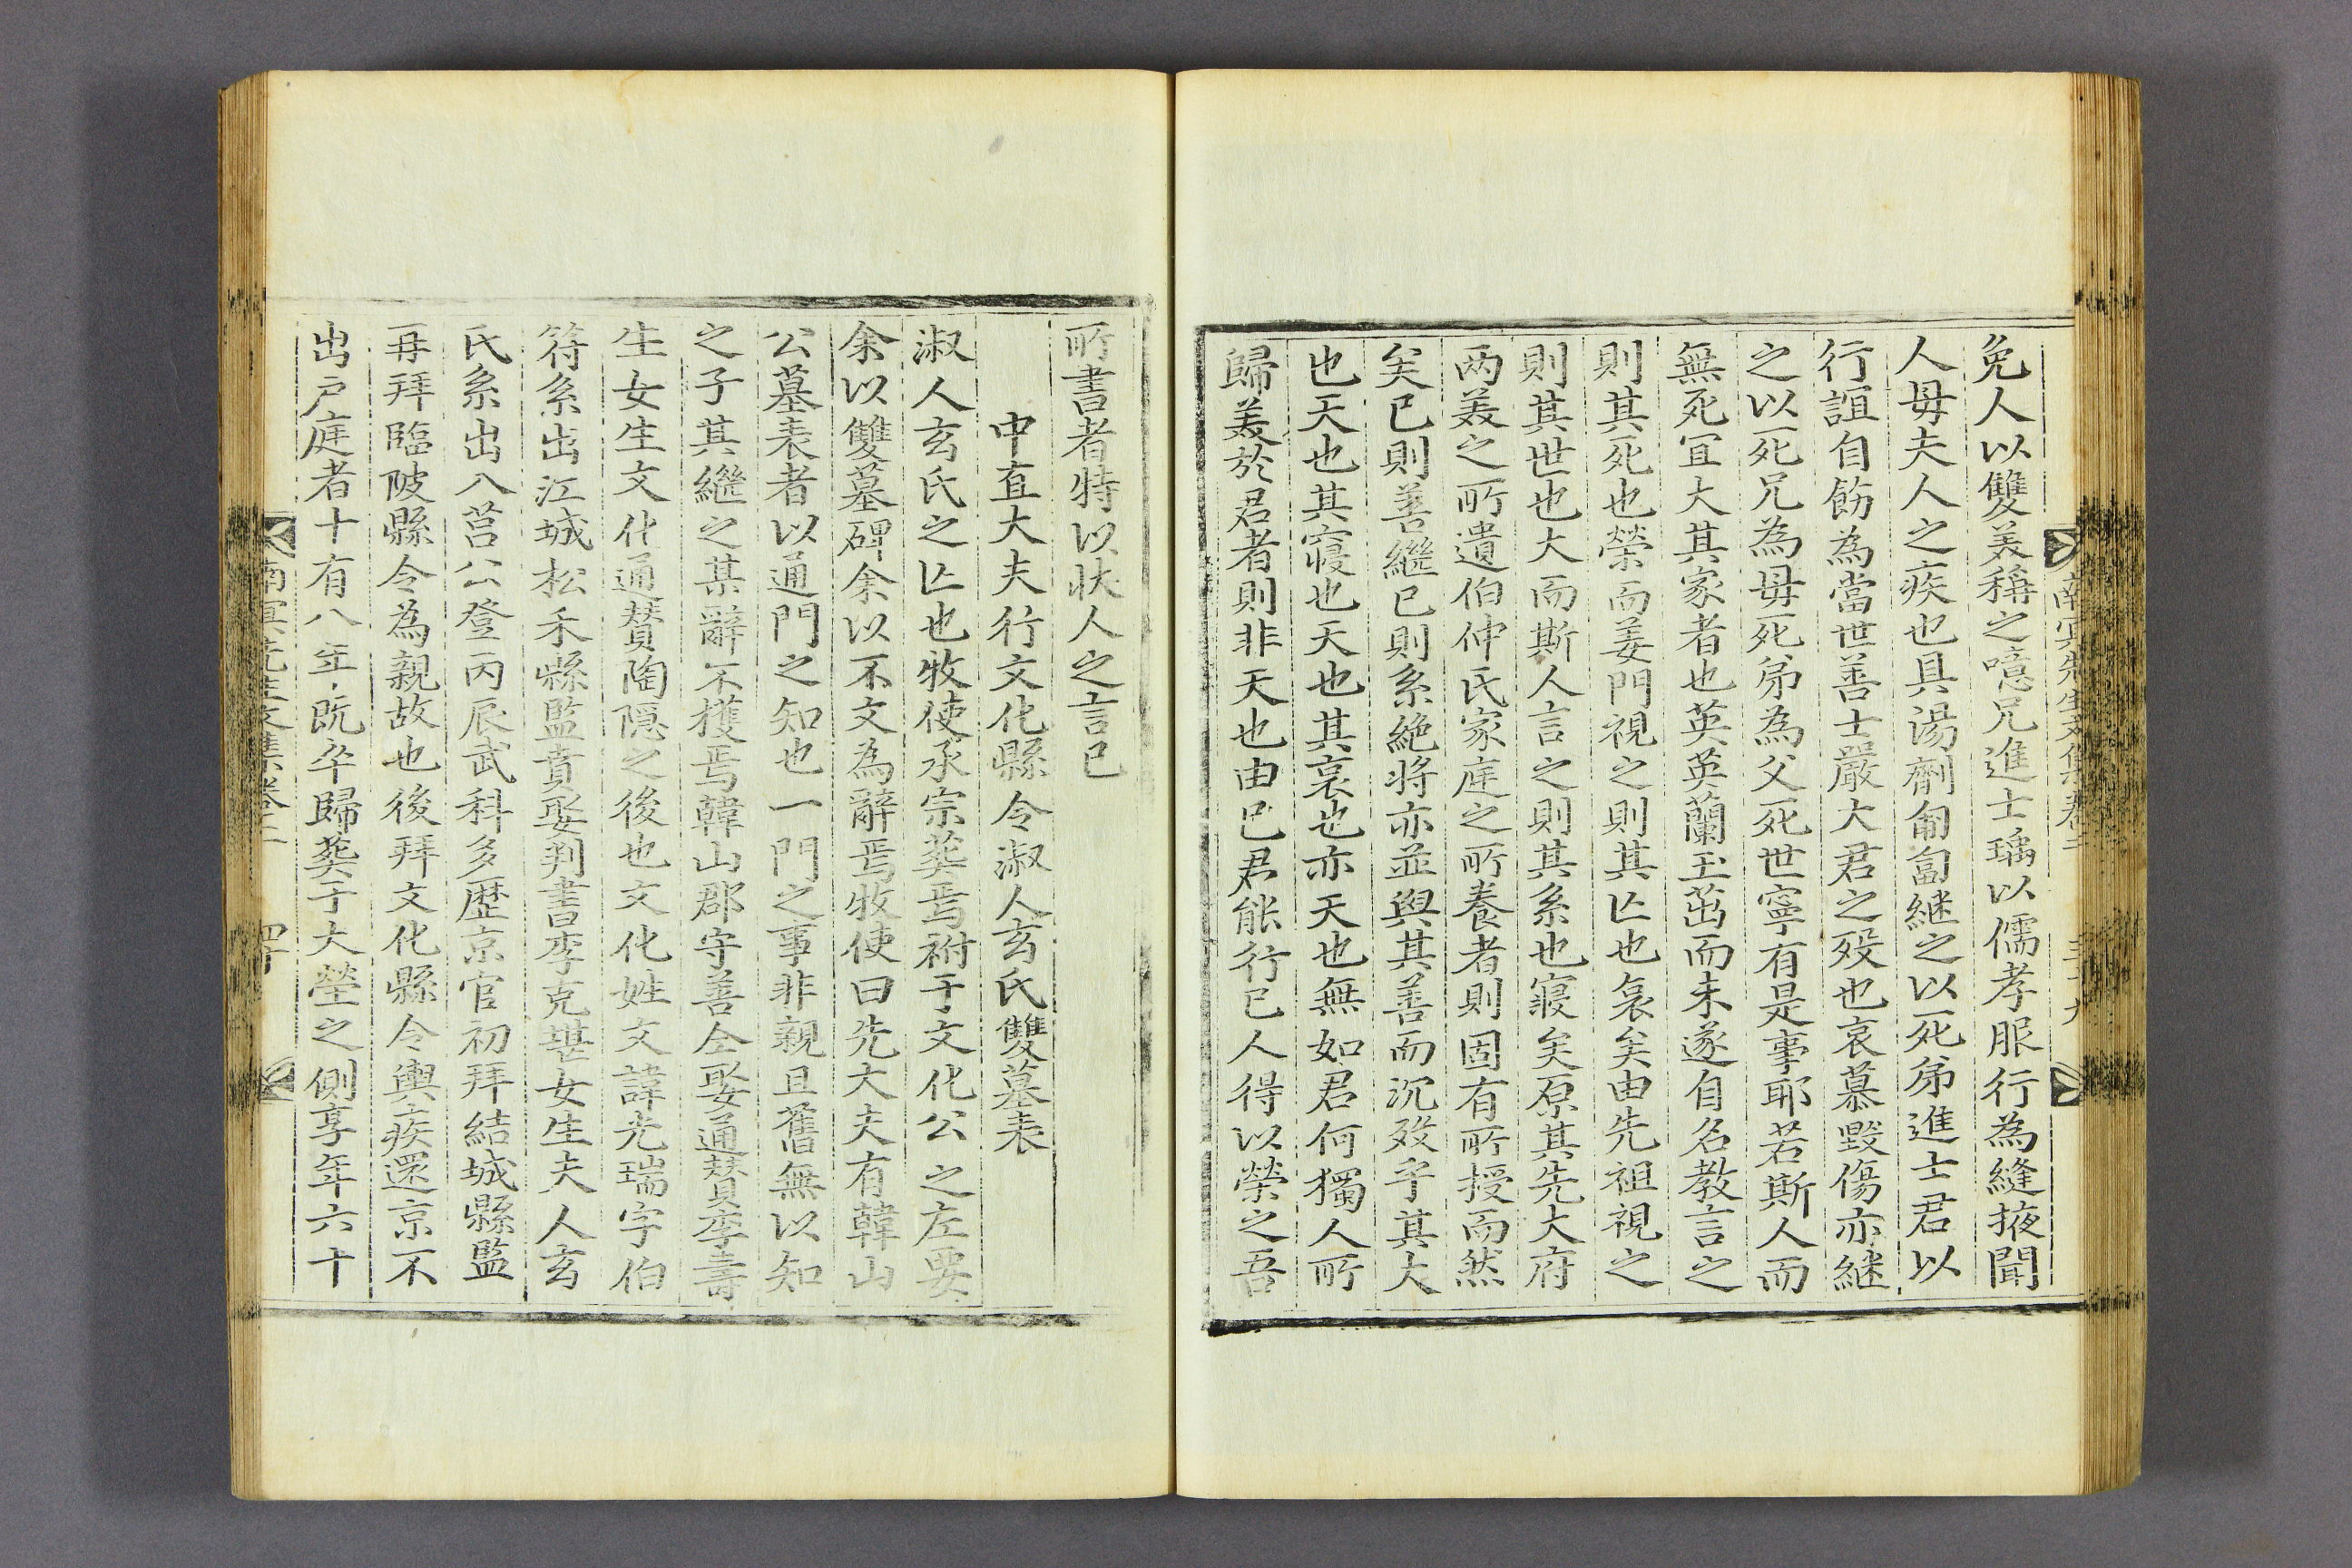 免人以雙美稱之噫兄進士瑀以儒孝服行為縫掖聞
人母夫人之疾也具湯劑匍匐継之以死弟進士君以
行誼自飭為當世善士嚴大君之歿也哀慕毀傷亦継
之以死兄為母死弟為父死世寧有是事耶若斯人而
無死冝大其家者也英英蘭玉茁而未遂自名教言之
則其死也榮而姜門視之則其亾也哀矣由先祖視之
則其世也大而斯人言之則其系也寢矣原其先大府
两美之所遺伯仲氏家庭之所養者則固有所授而然
矣已則善繼已則系絶将亦並與其善而沉歿乎其大
也天也其寢也天也其哀也亦天也無如君何獨人所
歸美於君者則非天也由已君能行已人得以榮之吾
南冥先生文集卷二
三十九
所書者特以状人之言已
中直大夫行文化縣令淑人玄氏雙墓表
淑人玄氏之亾也牧使承宗葬焉祔于文化公之左要
余以雙墓碑余以不文為辭焉牧使曰先大夫有韓山
公墓表者以通門之知也一門之事非親且舊無以知
之子其繼之某辭不獲焉韓山郡守善全娶通賛李壽
生女生文化通賛陶隠之後也文化姓文諱光瑞字伯
符系出江城松禾縣監賁娶判書李克堪女生夫人玄
氏系出八莒公登丙辰武科多歴京官初拜結城縣監
再拜臨陂縣令為親故也後拜文化縣令輿疾還京不
出戶庭者十有八年既卒歸葬于大塋之側享年六十
南冥先生文集卷二
四十